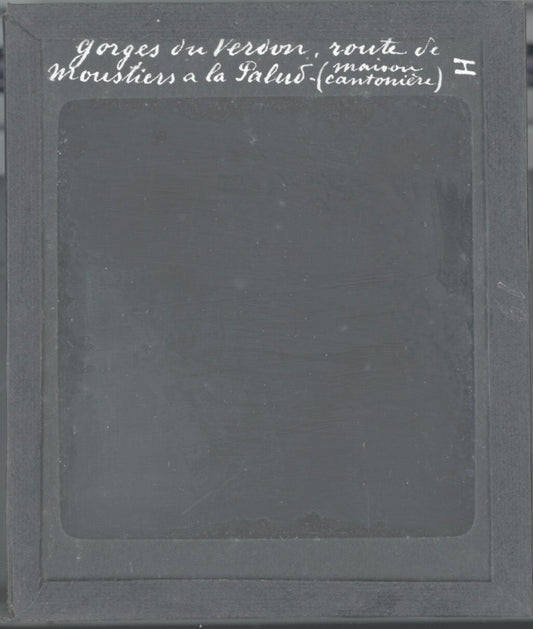 gorges du Verdon, route de
moustiers a la Palud-(maison
cantonière)
H